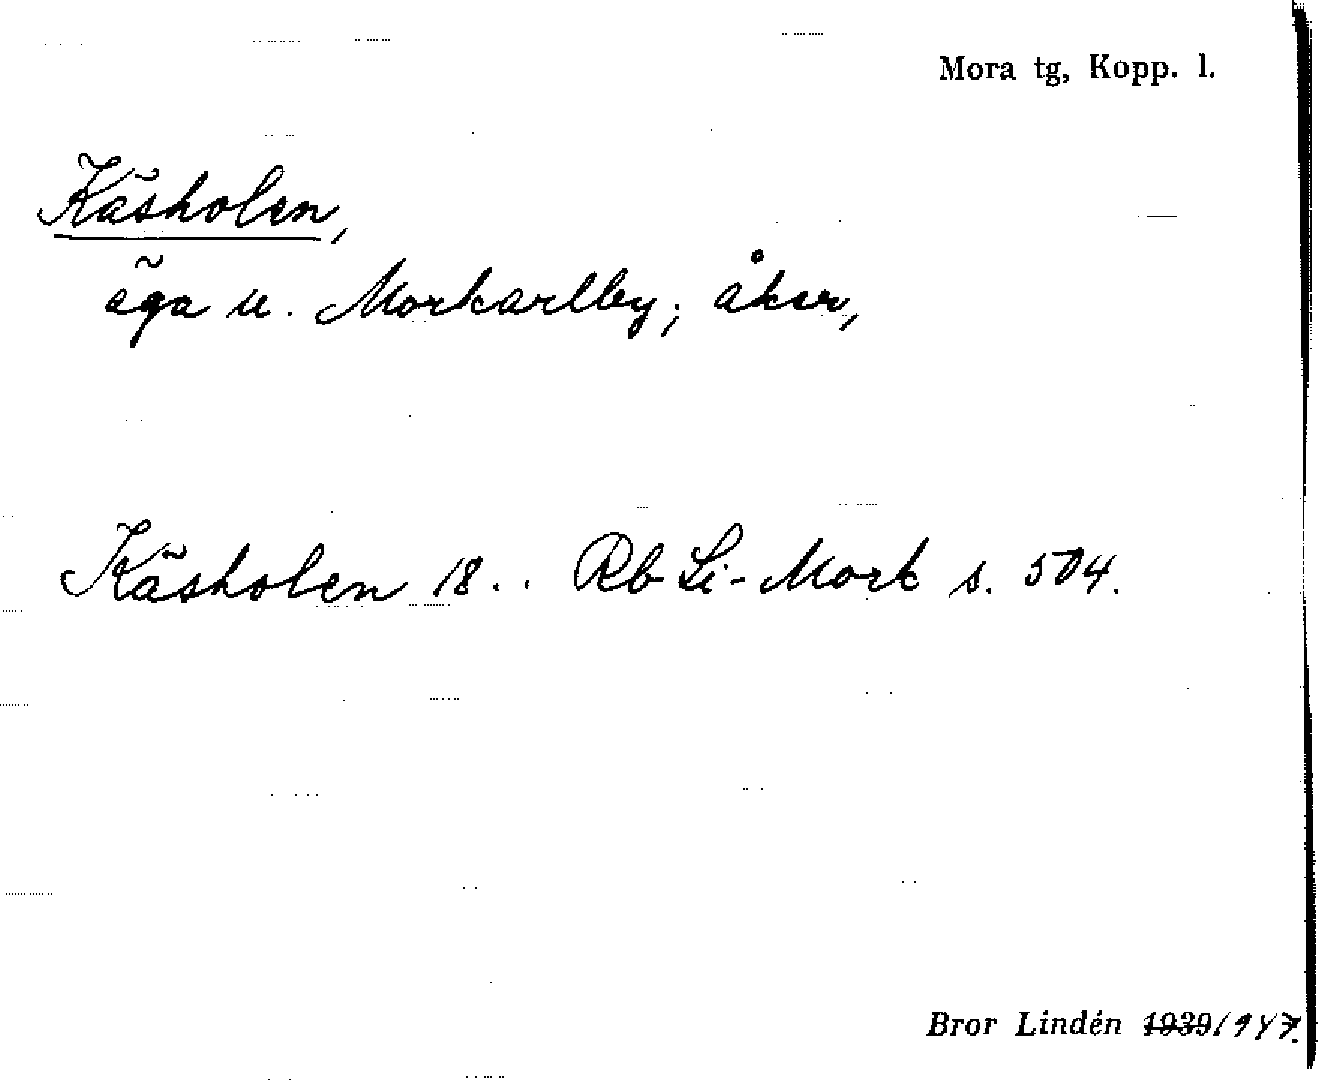 Mora tg, Kopp. l.
Käsholen,
äga u. Morkarlby; åker,
Käsholen 18.. Rb Li-Mork s. 504.
Bror Lindén 1939/1947.